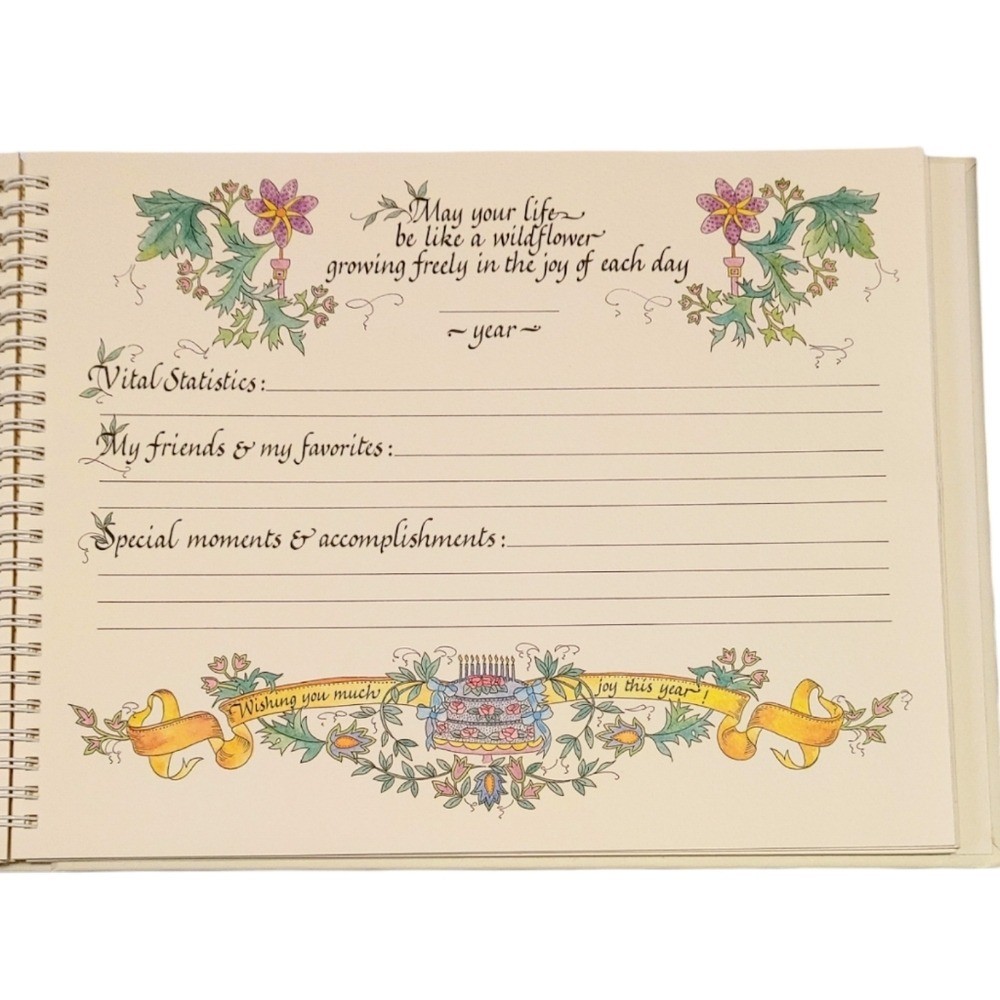 May your life
be like a wildflower
growing freely in the joy of each day
~ year ~
Vital Statistics:
My friends & my favorites:
Special moments & accomplishments:
Wishing you much joy this year!